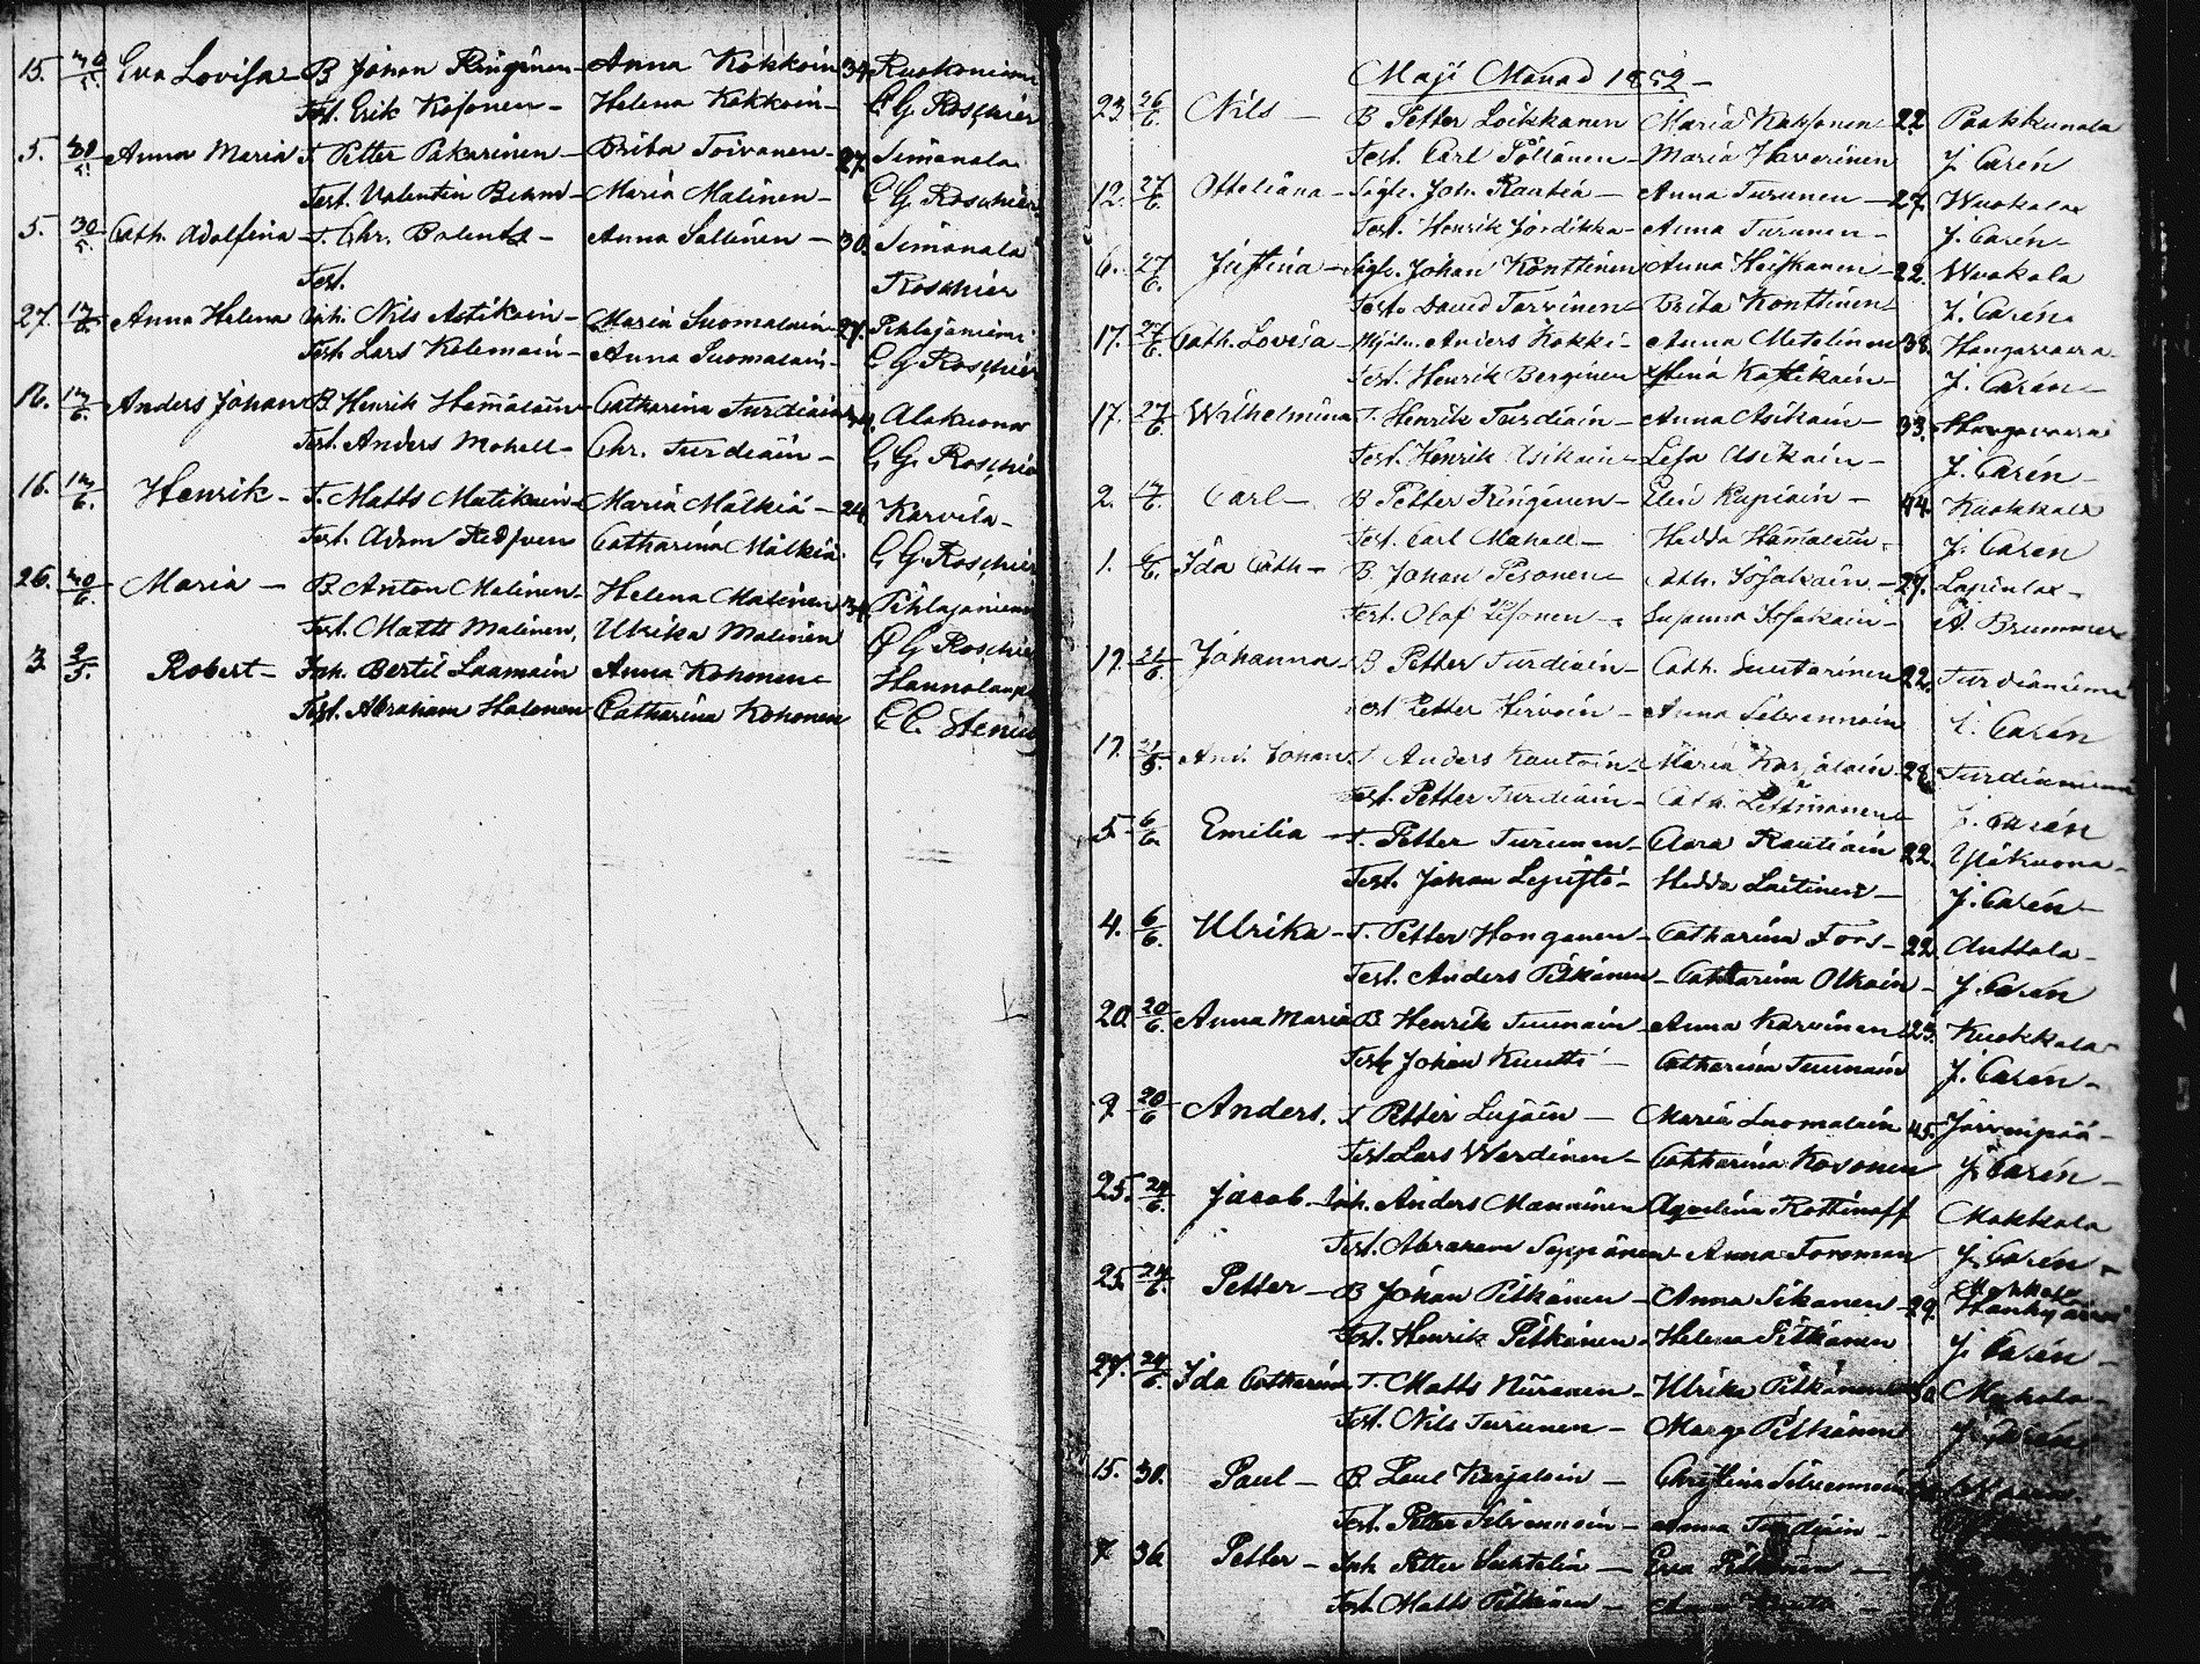 15. 30/5. Eva Lovisa - B Johan Ringinen - Anna Kokkoin 34. Ruokoniemi
Test. Erik Kosonen - Helena Kokkoin - C G Roschier
5. 30/5. Anna Maria T. Petter Pakarinen - Brita Toivanen - 27. Simanala
Test. Valentin Behm - Maria Malinen - C G Roschier
5. 30/5. Cath. Adolfina - T. Chr. - Anna Sallinen - 30. Simanala
Test. Roschier
27. Anna Helena Inh. Nils Astikain - Maria Suomalain - 27. Pihlajaniemi
Test. Lars Kolemain - Anna Suomalain - C G Roschier
16. 13/6. Anders Johan B. Henrik Hämäläin - Catharina Turdiain Alakuona
Test. Anders Mohell - Chr. Turdiain - C. G. Roschier
16. 13/6. Henrik - T. Matts Matikain - Maria Mälkiä - 24. Karvila -
Test. Adam Catharina Mälkiä. C. G. Roschier
26. 20/6. Maria - B. Anton Malinen - Helena Malinen 34. Pihlajaniemi
Test. Matts Malinen, Ulrika Malinen C G Roschier
3. 2/5. Robert - Inh. Bertil Laamain Anna Kohonen -
Test. Abraham Halonen Catharina Kohonen C C. Stenius
Maji Månad 1852 -
23 26/6. Nils - B Petter Loikkanen Maria Kakkonen 22. Paakkunala
Test. Carl Pöllänen - Maria Haverinen J. Carén
12. 27/6. Otteliana - Sigh. Joh. Rautia - Anna Turunen - 27. Wuokala
Test. Henrik - Anna Turunen - J. Carén -
6. 27/6. Justina - Sigh. Johan Konttinen Anna Heiskanen - 22. Wuokala
Test. David Tarvinen - Brita Konttinen - J. Carén.
17. 27/6. Cath. Lovisa - Mjöln. Anders Kokki - Anna Metelinen 38. Hangasvaara -
Test. Henrik Berginen Stina Kostikain - J. Carén -
17. 27/6. Wilhelmina T. Henrik Turdiain - Anna Asikain - 33. Hangasvaara
Test. Henrik Asikain - Lisa Asikain - J. Carén -
2. Carl - B Petter Ringinen - Elin Rapiain - 44. Kuokkala
Test. Carl Mahell - Hedda Hämäläin - J. Carén
1. 6/6. Ida Cath - B. Johan Pesonen - Cath. - 27. Lapinlax -
Test. Olof Pesonen - Susanna - A. Brummer
19. Johanna - B Petter Turdiain - Cath. Suutarinen 22. Turdianiemi
Test Petter Hirvoin - Anna Silvennoin J. Carén
19. And. Johan. Anders Rautoin - Maria Karjalain - 28. Turdianiemi
Test. Petter Turdiain - Cath. J. Carén
5. 6/6. Emilia - T. Petter Turunen - Clara Rautiain 22. Yläkuona -
Test. Johan - Hedda Laitinen - J. Carén -
4. 6/6. Ulrika - T. Petter Honganen - Catharina Fors - 22. Anttola -
Test. Anders Pitkänen - Catharina Olkoin - J. Carén
20. 20/6. Anna Maria B. Henrik Tuunain - Anna Karvinen 23. Kuokkala
Test. Johan Kuutti - Catharina Tuunain J. Carén -
9. 20/6 Anders. T Petter - Maria Suomalain 45. Järvenpää -
Test. Lars Werdinen - Catharina Kosonen J. Carén -
25. 24/6. Jacob - Inh. Anders Manninen Agvelina Kottinoff Makkola
Test. Abraham Seppänen - Anna Torvonen J. Carén -
25. 24/6. Petter - B Johan Pitkänen - Anna Sikanen - 29. Makkola Hankijärvi
Test. Henrik Pitkänen - Helena Pitkänen J. Carén -
27. 24/6. Ida Catharina T. Matts Niiranen - Ulrika Pitkänen 30
Test. Nils Turunen - Marg. Pitkänen J. Carén
15. 30. Paul - B. Paul Karjalain - Christina Silvennoin
Test. Petter Silvennoin - Anna Turdiain -
7 Petter - Inh. Petter - Eva Pitkänen -
Test. Matts Pitkänen -